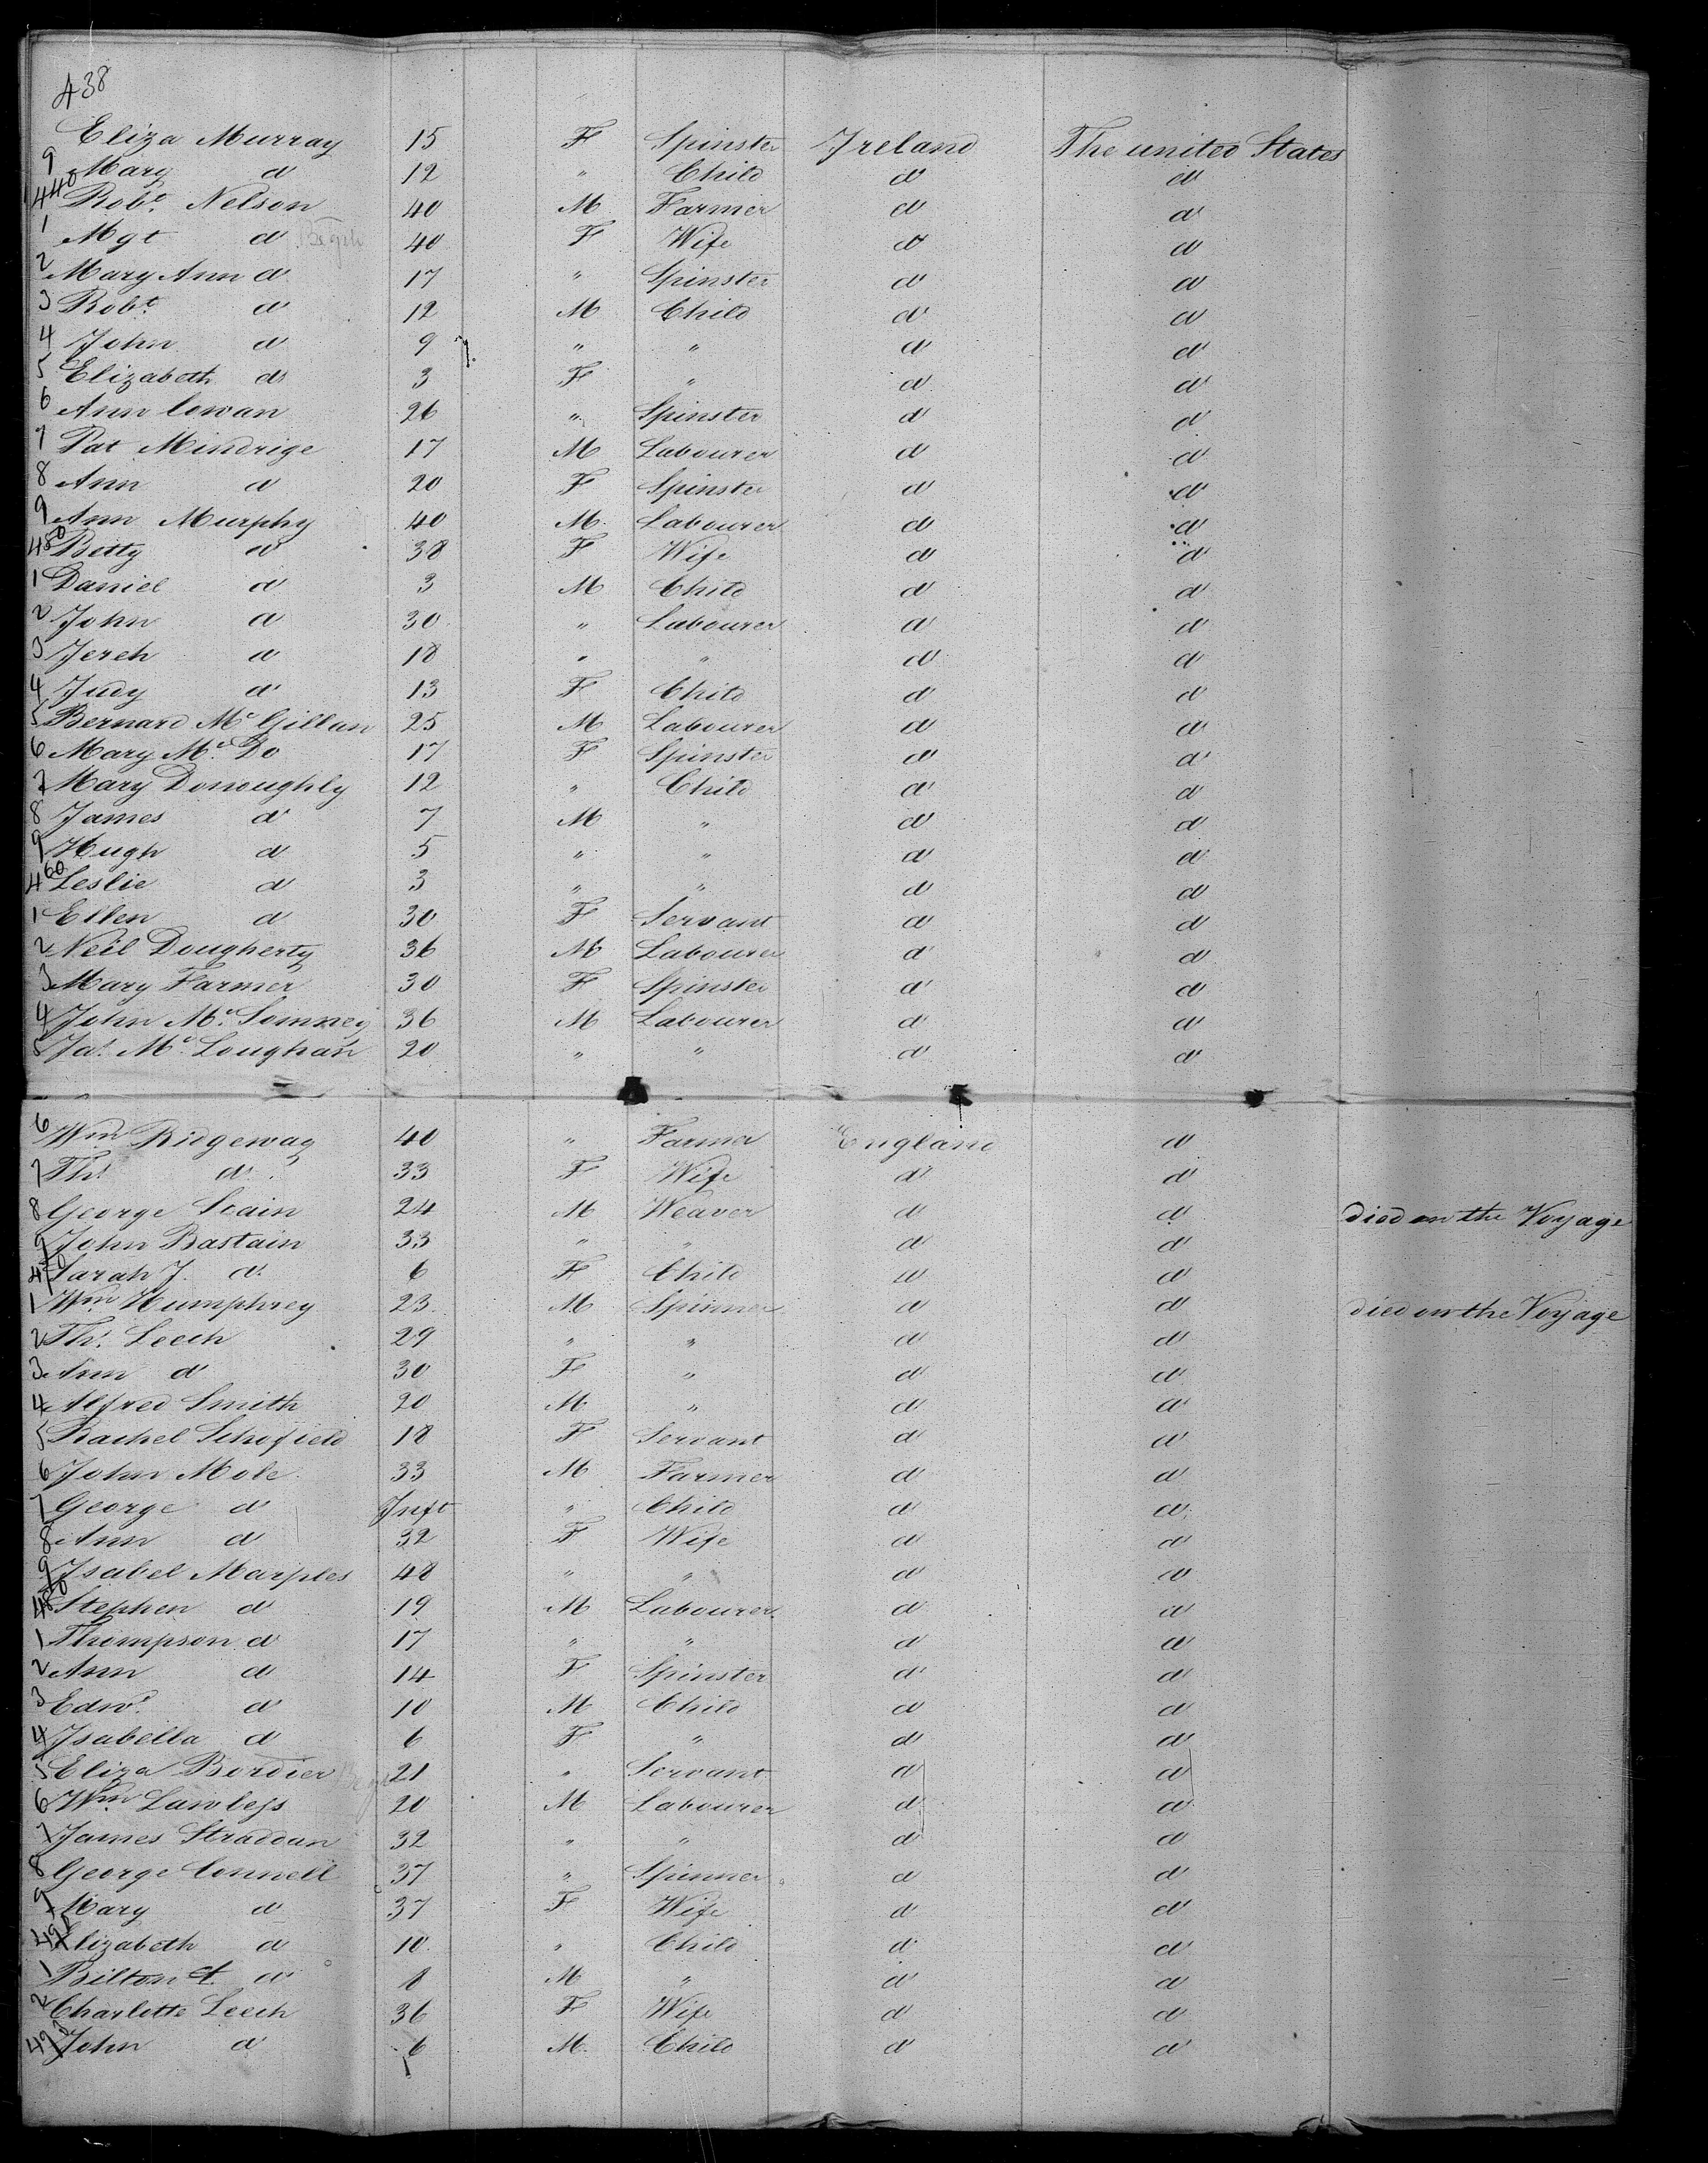 438
Eliza Murray 15 F Spinster Ireland The united States
9 Mary d 12 " Child d d
440 Robt. Nelson 40 M Farmer d d
1 Mgt d 40 F Wife d d
2 Mary Ann d 17 " Spinster d d
3 Robt. d 12 M Child d d
4 John d 9 " " d d
5 Elizabeth d 3 F " d d
6 Ann Cowan 26 " Spinster d d
7 Pat Mindrige 17 M Labourer d d
8 Ann d 20 F Spinster d d
9 Ann Murphy 40 M Labourer d d
450 Betty d 38 F Wife d d
1 Daniel d 3 M Child d d
2 John d 30 " Labourer d d
3 Jereh d 18 " " d d
4 Judy d 13 F Child d d
5 Bernard Mc Gillan 25 M Labourer d d
6 Mary Mc. Do 17 F Spinster d d
7 Mary Donoughly 12 " Child d d
8 James d 7 M " d d
9 Hugh d 5 " " d d
460 Leslie d 3 " " d d
1 Ellen d 30 F Servant d d
2 Neil Dougherty 36 M Labourer d d
3 Mary Farmer 30 F Spinster d d
4 John Mc. 36 M Labourer d d
5 Jas. Mc. Loughan 20 " " d d
6 Wm Ridgeway 40 " Farmer England d
7 Ths. d 33 F Wife d d
8 George 24 M Weaver d d died on the Voyage
9 John Bastain 33 " " d d
470 Sarah J. d 6 F Child d d
1 Wm Humphrey 23 M Spinner d d died on the Voyage
2 Ths. Leech 29 " " d d
3 Ann d 30 F " d d
4 Alfred Smith 20 M " d d
5 Rachel Schofield 18 F Servant d d
6 John Mole 33 M Farmer d d
7 George d Inft " Child d d
8 Ann d 32 F Wife d d
9 Isabel Marples 48 " " d d
480 Stephen d 19 M Labourer d d
1 Thompson d 17 " " d d
2 Ann d 14 F Spinster d d
3 Edwd. d 10 M Child d d
4 Isabella d 6 F " d d
5 Eliza Bordier 21 " Servant d d
6 Wm Lawlejs 20 M Labourer d d
7 James Straddan 32 " " d d
8 George Connell 37 " Spinner d d
9 Mary d 37 F Wife d d
490 Elizabeth d 10 " Child d d
1 Bilton d 8 M " d d
2 Charlotte Leech 36 F Wife d d
493 John d 6 M. Child d d